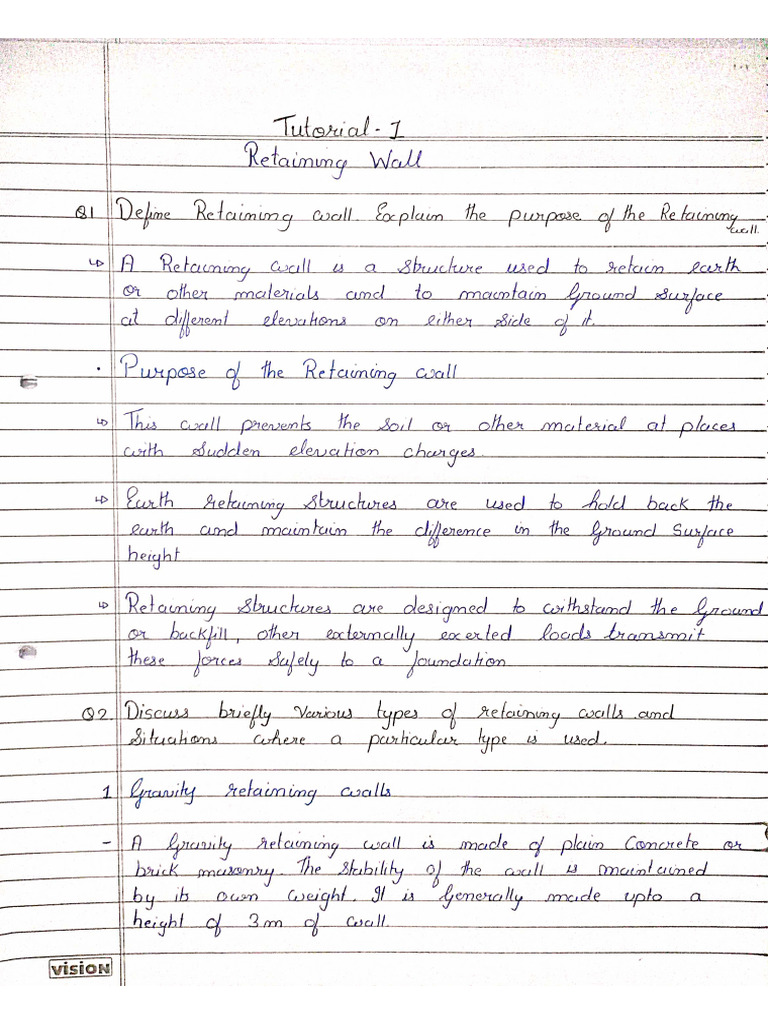 Tutorial - 1
Retaining Wall
Q1 Define Retaining wall. Explain the purpose of the Retaining wall.
↳ A Retaining wall is a structure used to retain earth
or other materials and to maintain Ground surface
at different elevations on either side of it.
• Purpose of the Retaining wall
↳ This wall prevents the soil or other material at places
with sudden elevation charges.
↳ Earth retaining structures are used to hold back the
earth and maintain the difference in the Ground Surface
height
↳ Retaining structures are designed to withstand the Ground
or backfill, other externally exerted loads transmit
these forces safely to a foundation
Q2. Discuss briefly various types of retaining walls and
situations where a particular type is used.
1 Gravity retaining walls
- A Gravity retaining wall is made of plain Concrete or
brick masonry. The stability of the wall is maintained
by its own weight. It is Generally made upto a
height of 3m of wall.
VISION